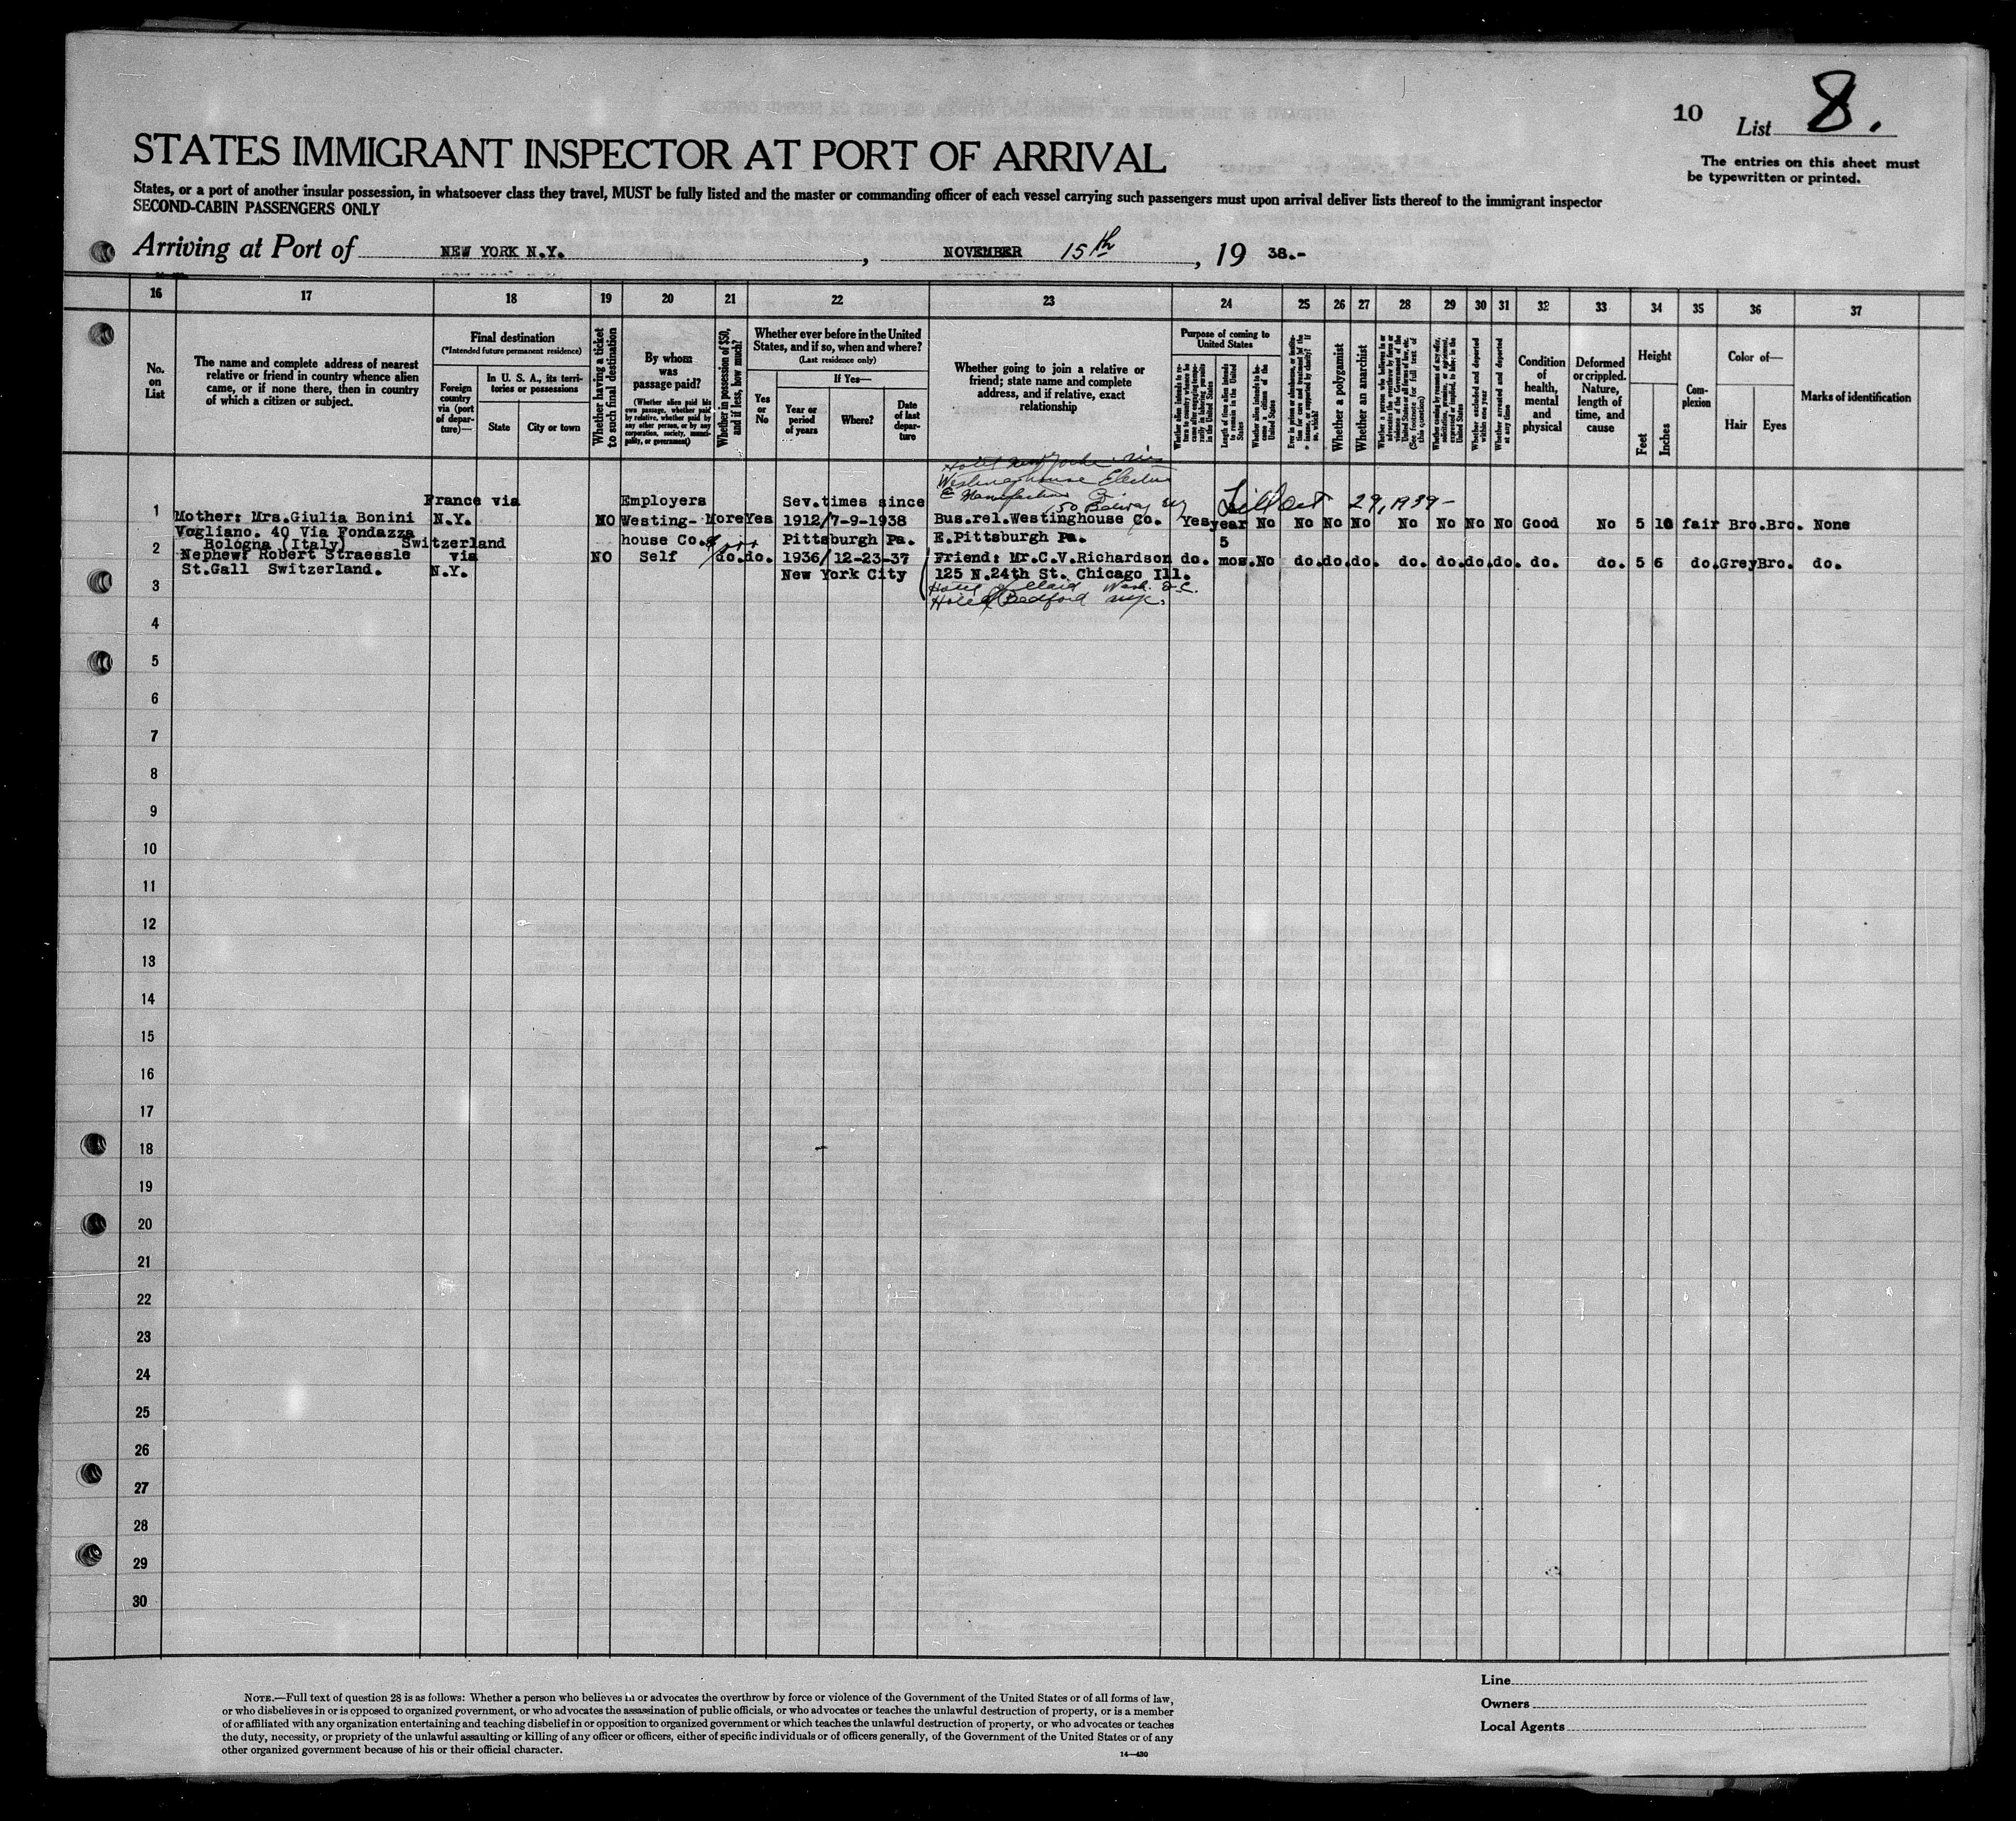 10 List 8.
STATES IMMIGRANT INSPECTOR AT PORT OF ARRIVAL
The entries on this sheet must
be typewritten or printed.
States, or a port of another insular possession, in whatsoever class they travel, MUST be fully listed and the master or commanding officer of each vessel carrying such passengers must upon arrival deliver lists thereof to the immigrant inspector
SECOND-CABIN PASSENGERS ONLY
Arriving at Port of NEW YORK N.Y. , NOVEMBER 15th , 19 38.-
16 17 18 19 20 21 22 23 24 25 26 27 28 29 30 31 32 33 34 35 36 37
No.
on
List
The name and complete address of nearest
relative or friend in country whence alien
came, or if none there, then in country
of which a citizen or subject.
Final destination
(*Intended future permanent residence)
Foreign
country
via (port
of depar-
ture)—
In U. S. A., its terri-
tories or possessions
State
City or town
Whether having a ticket
to such final destination
By whom
was
passage paid?
(Whether alien paid his
own passage, whether paid
by relative, whether paid by
any other person, or by any
corporation, society, munici-
pality, or government)
Whether in possession of $50,
and if less, how much?
Whether ever before in the United
States, and if so, when and where?
(Last residence only)
Yes
or
No
If Yes—
Year or
period
of years
Where?
Date
of last
depar-
ture
Whether going to join a relative or
friend; state name and complete
address, and if relative, exact
relationship
Purpose of coming to
United States
Length of time alien intends
to remain in the United
States
Whether alien intends to be-
come a citizen of the
United States
Whether a polygamist
Whether an anarchist
(See footnote for full text of
this question)
Whether excluded and deported
within one year
Whether arrested and deported
at any time
Condition
of
health,
mental
and
physical
Deformed
or crippled.
Nature,
length of
time, and
cause
Height
Feet
Inches
Com-
plexion
Color of—
Hair
Eyes
Marks of identification
Westinghouse Electric
France via Employers Sev.times since & Oct 29, 1939-
1 Mother: Mrs.Giulia Bonini N.Y. NO Westing- More Yes 1912/7-9-1938 Bus.rel.Westinghouse Co. Yes year No No No No No No No No Good No 5 10 fair Bro.Bro. None
Vogliano. 40 Via Fondazza house Co. Pittsburgh Pa. E.Pittsburgh Pa.
2 Bologna (Italy) Switzerland 5
Nephew: Robert Straessle via NO Self do.do. 1936/12-23-37 Friend: Mr.C.V.Richardson do. mos.No do.do.do. do. do.do.do. do. do. 5 6 do.GreyBro. do.
St.Gall Switzerland. N.Y. New York City 125 N.24th St. Chicago Ill.
3 Hotel Wash. D.C.
Hotel Bedford nyc.
4
5
6
7
8
9
10
11
12
13
14
15
16
17
18
19
20
21
22
23
24
25
26
27
28
29
30
NOTE.—Full text of question 28 is as follows: Whether a person who believes in or advocates the overthrow by force or violence of the Government of the United States or of all forms of law,
or who disbelieves in or is opposed to organized government, or who advocates the assassination of public officials, or who advocates or teaches the unlawful destruction of property, or is a member
of or affiliated with any organization entertaining and teaching disbelief in or opposition to organized government or which teaches the unlawful destruction of property, or who advocates or teaches
the duty, necessity, or propriety of the unlawful assaulting or killing of any officer or officers, either of specific individuals or of officers generally, of the Government of the United States or of any
other organized government because of his or their official character.
14—430
Line
Owners
Local Agents